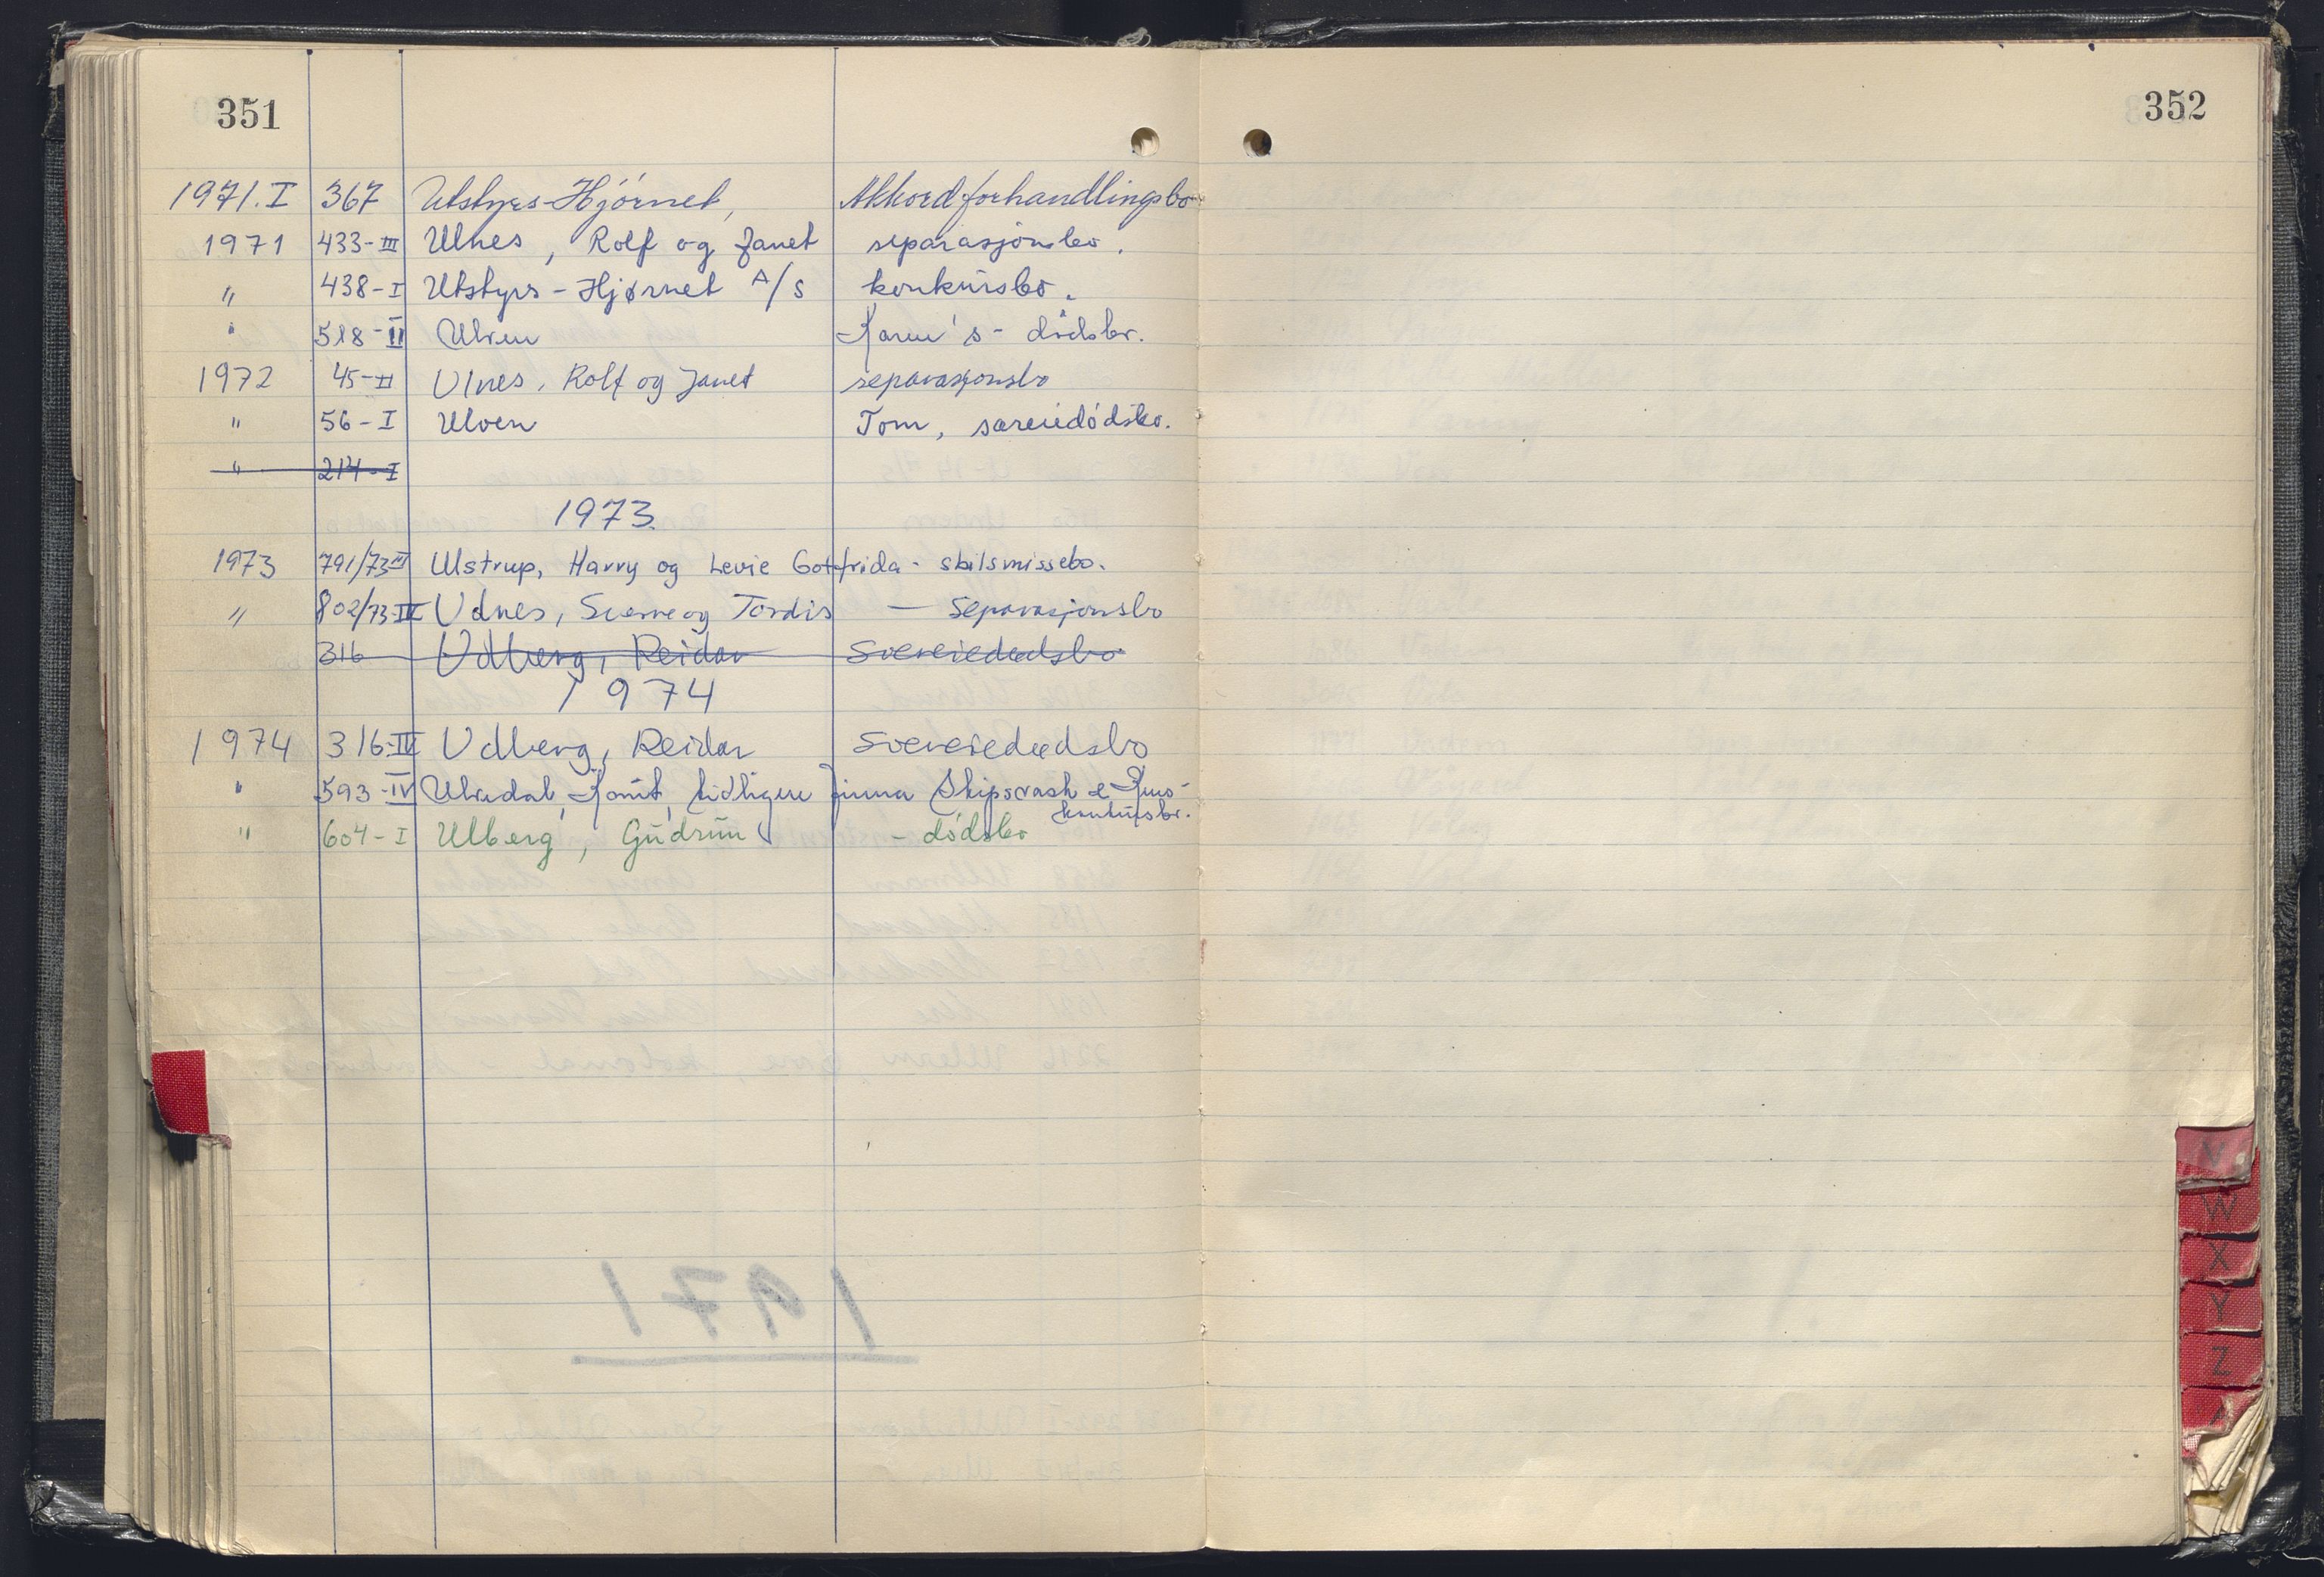 351
352
1971.I 367 Utstyrs-Hjórnet, Akkordforhandlingsbo
1971 433-III Ulnes, Rolf og Janet separasjonsbo.
" 438-I Utstyrs-Hjørnet A/S konkursbo.
" 518-II Ulven Karen's - dødsbo.
1972 45-II Ulnes, Rolf og Janet separasjonsbo
" 56-I Ulven Tom, særeiedódsbo.
" 214-I
1973
1973 791/73 III Ulstrup, Harry og Levie Gottfrida - skilsmissebo.
" 802/73-IV Udnes, Sverre og Tordis — Separasjonsbo
316 Udberg, Reidar Sæereiedødsbo
1974
1974 316-IV Udberg, Reidar Sæereiedødsbo
" 593-IV Ulvedal, tidligere firma Skipsvask &
konkursbo.
" 604-I Ulberg, Gudrun - dódsbo
V
W
X
Y
Z